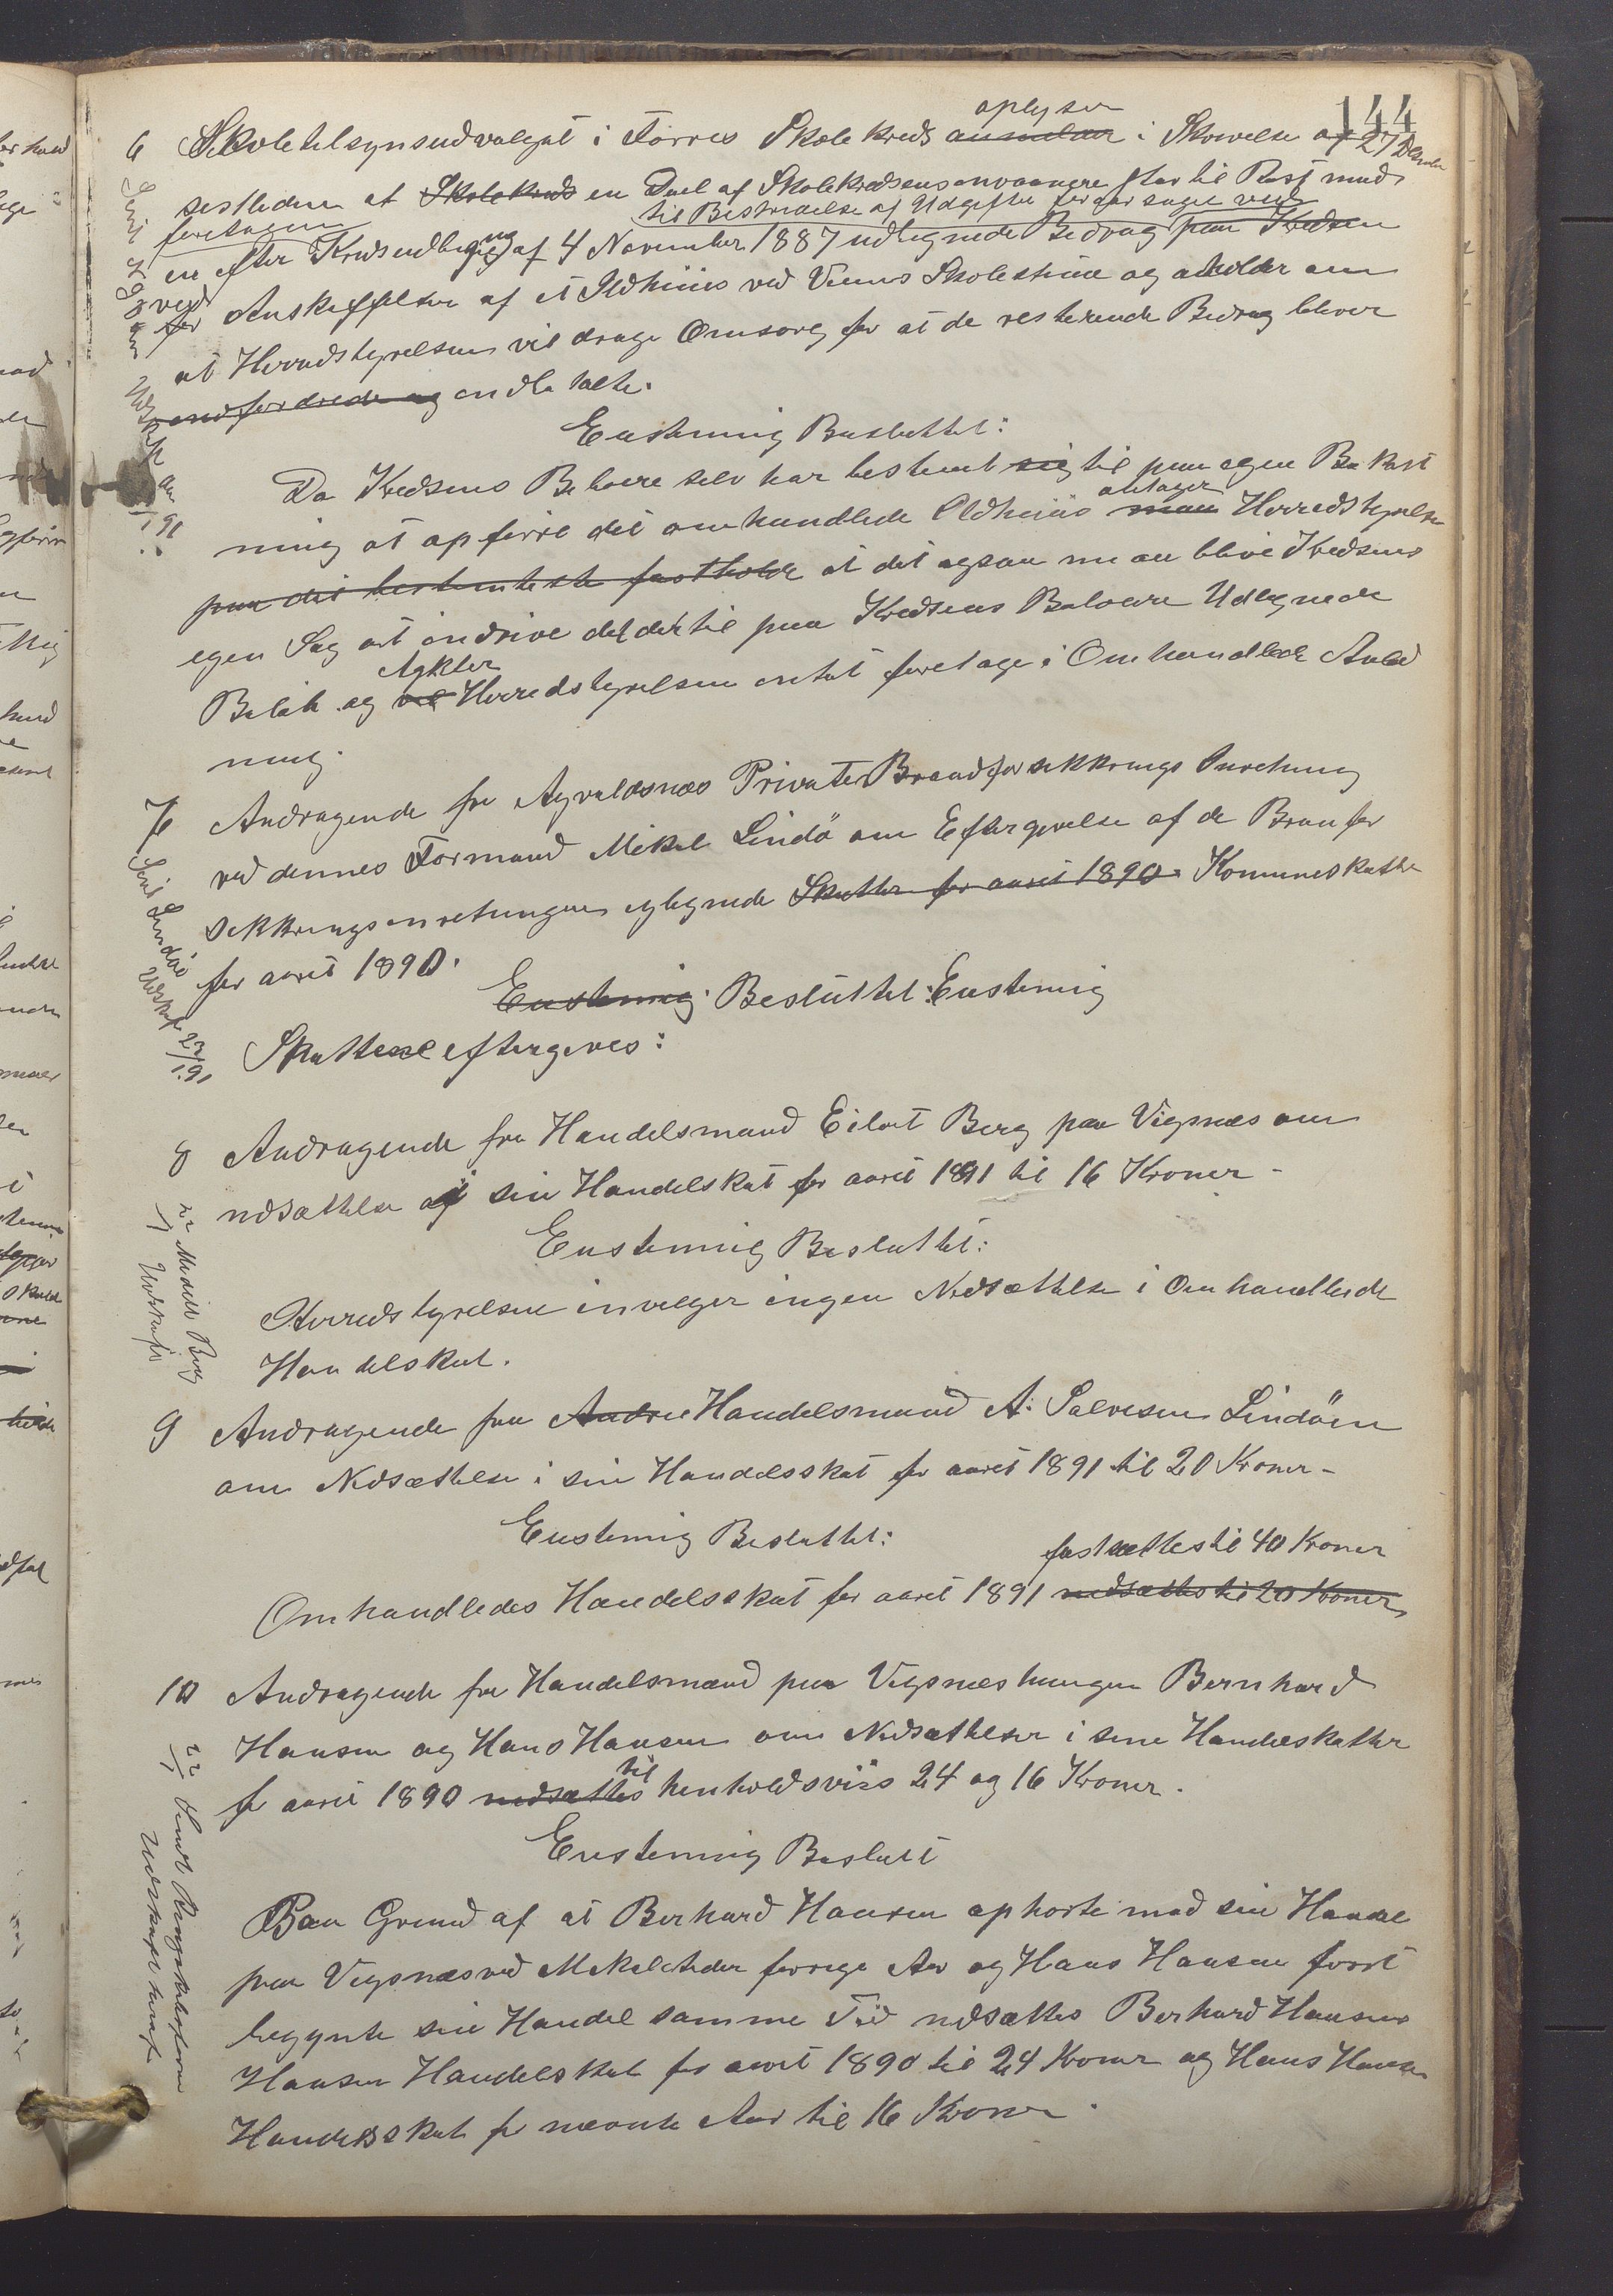 144
oplyser
6 Skoletilsynsudvalget i Førres Skolekreds anmelder i Skrivelse af 27 December
sestleden at Skolekreds en Deel af Skolekredsens onvaanere staar til Rest med
foretagen til Bestridelse af Udgifter foraarsaget ved
en efter Kredsudligning af 4 November 1887 udlignede Bedrag paa Kredsen
ved
for Anskaffelsen af et Ildhuus ved Visnes Skolestue og anholder om
at Herredstyrelsen vil drage Omsorg for at de resterende Bedrag bliver
indfordrede og indbetalte.
Enstemig Besluttet:
Da Kredsens Beboere selv har bestemt sig til paa egen Bekost
ning at opføre det omhandlede Ildhuus man Herredstyrelsen
antager
paa det bestemteste fastholde at det ogsaa maa blive Kredsens
egen Sag at inddrive det dertil paa Kredsens Beboere Udlignede
Agkter
Beløb og vil Herredstyrelsen intet foretage i Omhandlede Anled
ning.
7 Andragende fra Agvaldsnes Private Brandforsikkrings Inretning
ved dennes Formand Mikal Lindø om Eftergivelse af de Branfor
sikkringsinretningen iglignede Skatter for aaret 1890 Komuneskatter
for aaret 1890.
Enstemig Besluttet: Enstemig
Skattene eftergives:
Sent Lindøe Udskrift 22/1 91
8 Andragende fra Handelsmand Eilert Berg paa Vigsnes om
nedsættelse af i sin Handelskat for aaret 1891 til 16 Kroner -
Enstemig Besluttet:
Herredstyrelsen invelger ingen Nedsættelse i Omhandlede
Handelskat.
22/1 Meddelt Berg
Udskrift
9 Andragende fra Andre Handelsmand A. Salvesen Lindøen
om Nedsættelse i sin Handelsskat for aaret 1891 til 20 Kroner -
Enstemig Besluttet:
fastsættes til 40 Kroner
Omhandledes Handelsskat for aaret 1891 nedsættes til 20 Kroner
10 Andragende fra Handelsmænd paa Vigsneshaugen Bernhard
Hansen og Hans Hansen om Nedsættelser i sine Handelskatter
til
for aaret 1890 nedsættes henholdsviis 24 og 16 Kroner.
Enstemig Beslutt
Paa Grund af at Berhard Hansen ophørte med sin Handel
paa Vigsnes ved Mikaelstider forrige Aar og Hans Hansen først
begynte sin Handel samme Tid nedsættes Berhard Hansens
Hansen Handelskat for aaret 1890 til 24 Kroner og Hans Hansen
Handelsskat for nævnte Aar til 16 Kroner.
22/1 Sendt